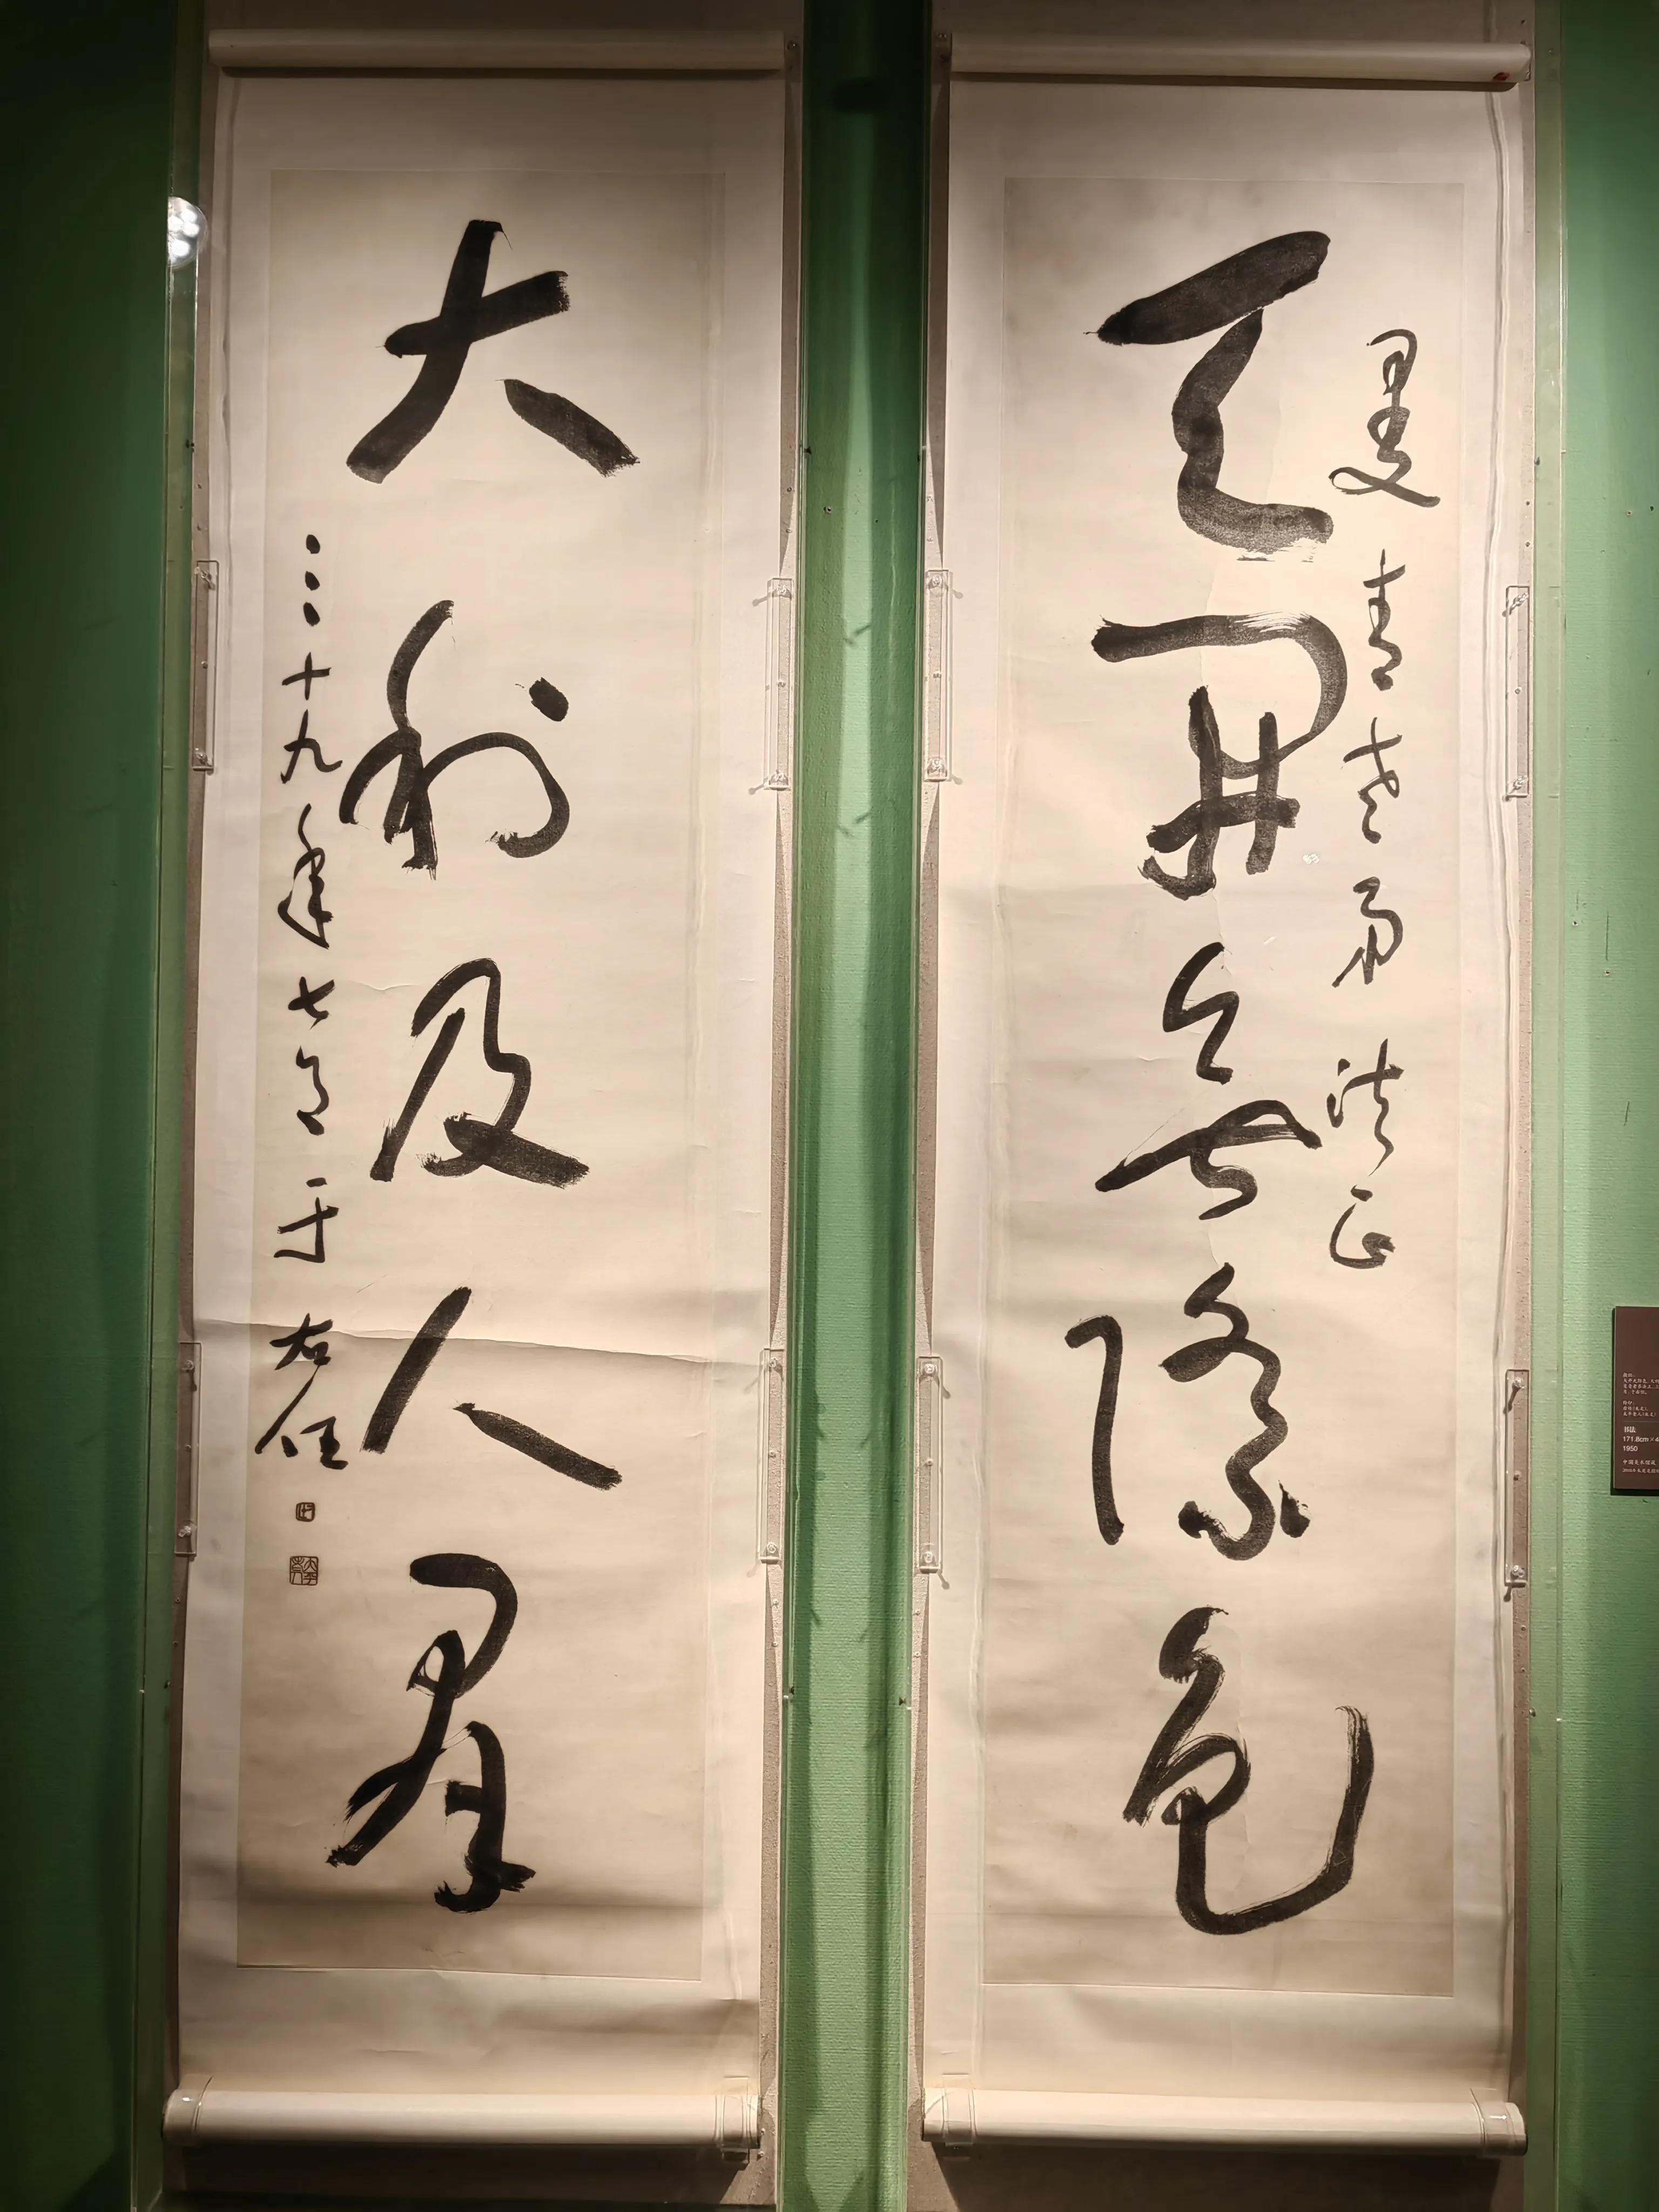 曼青老弟法正
天開無際色
大利及人羣
三十九年七月于右任
书法
171.8cm×4
1950
中国美术馆藏